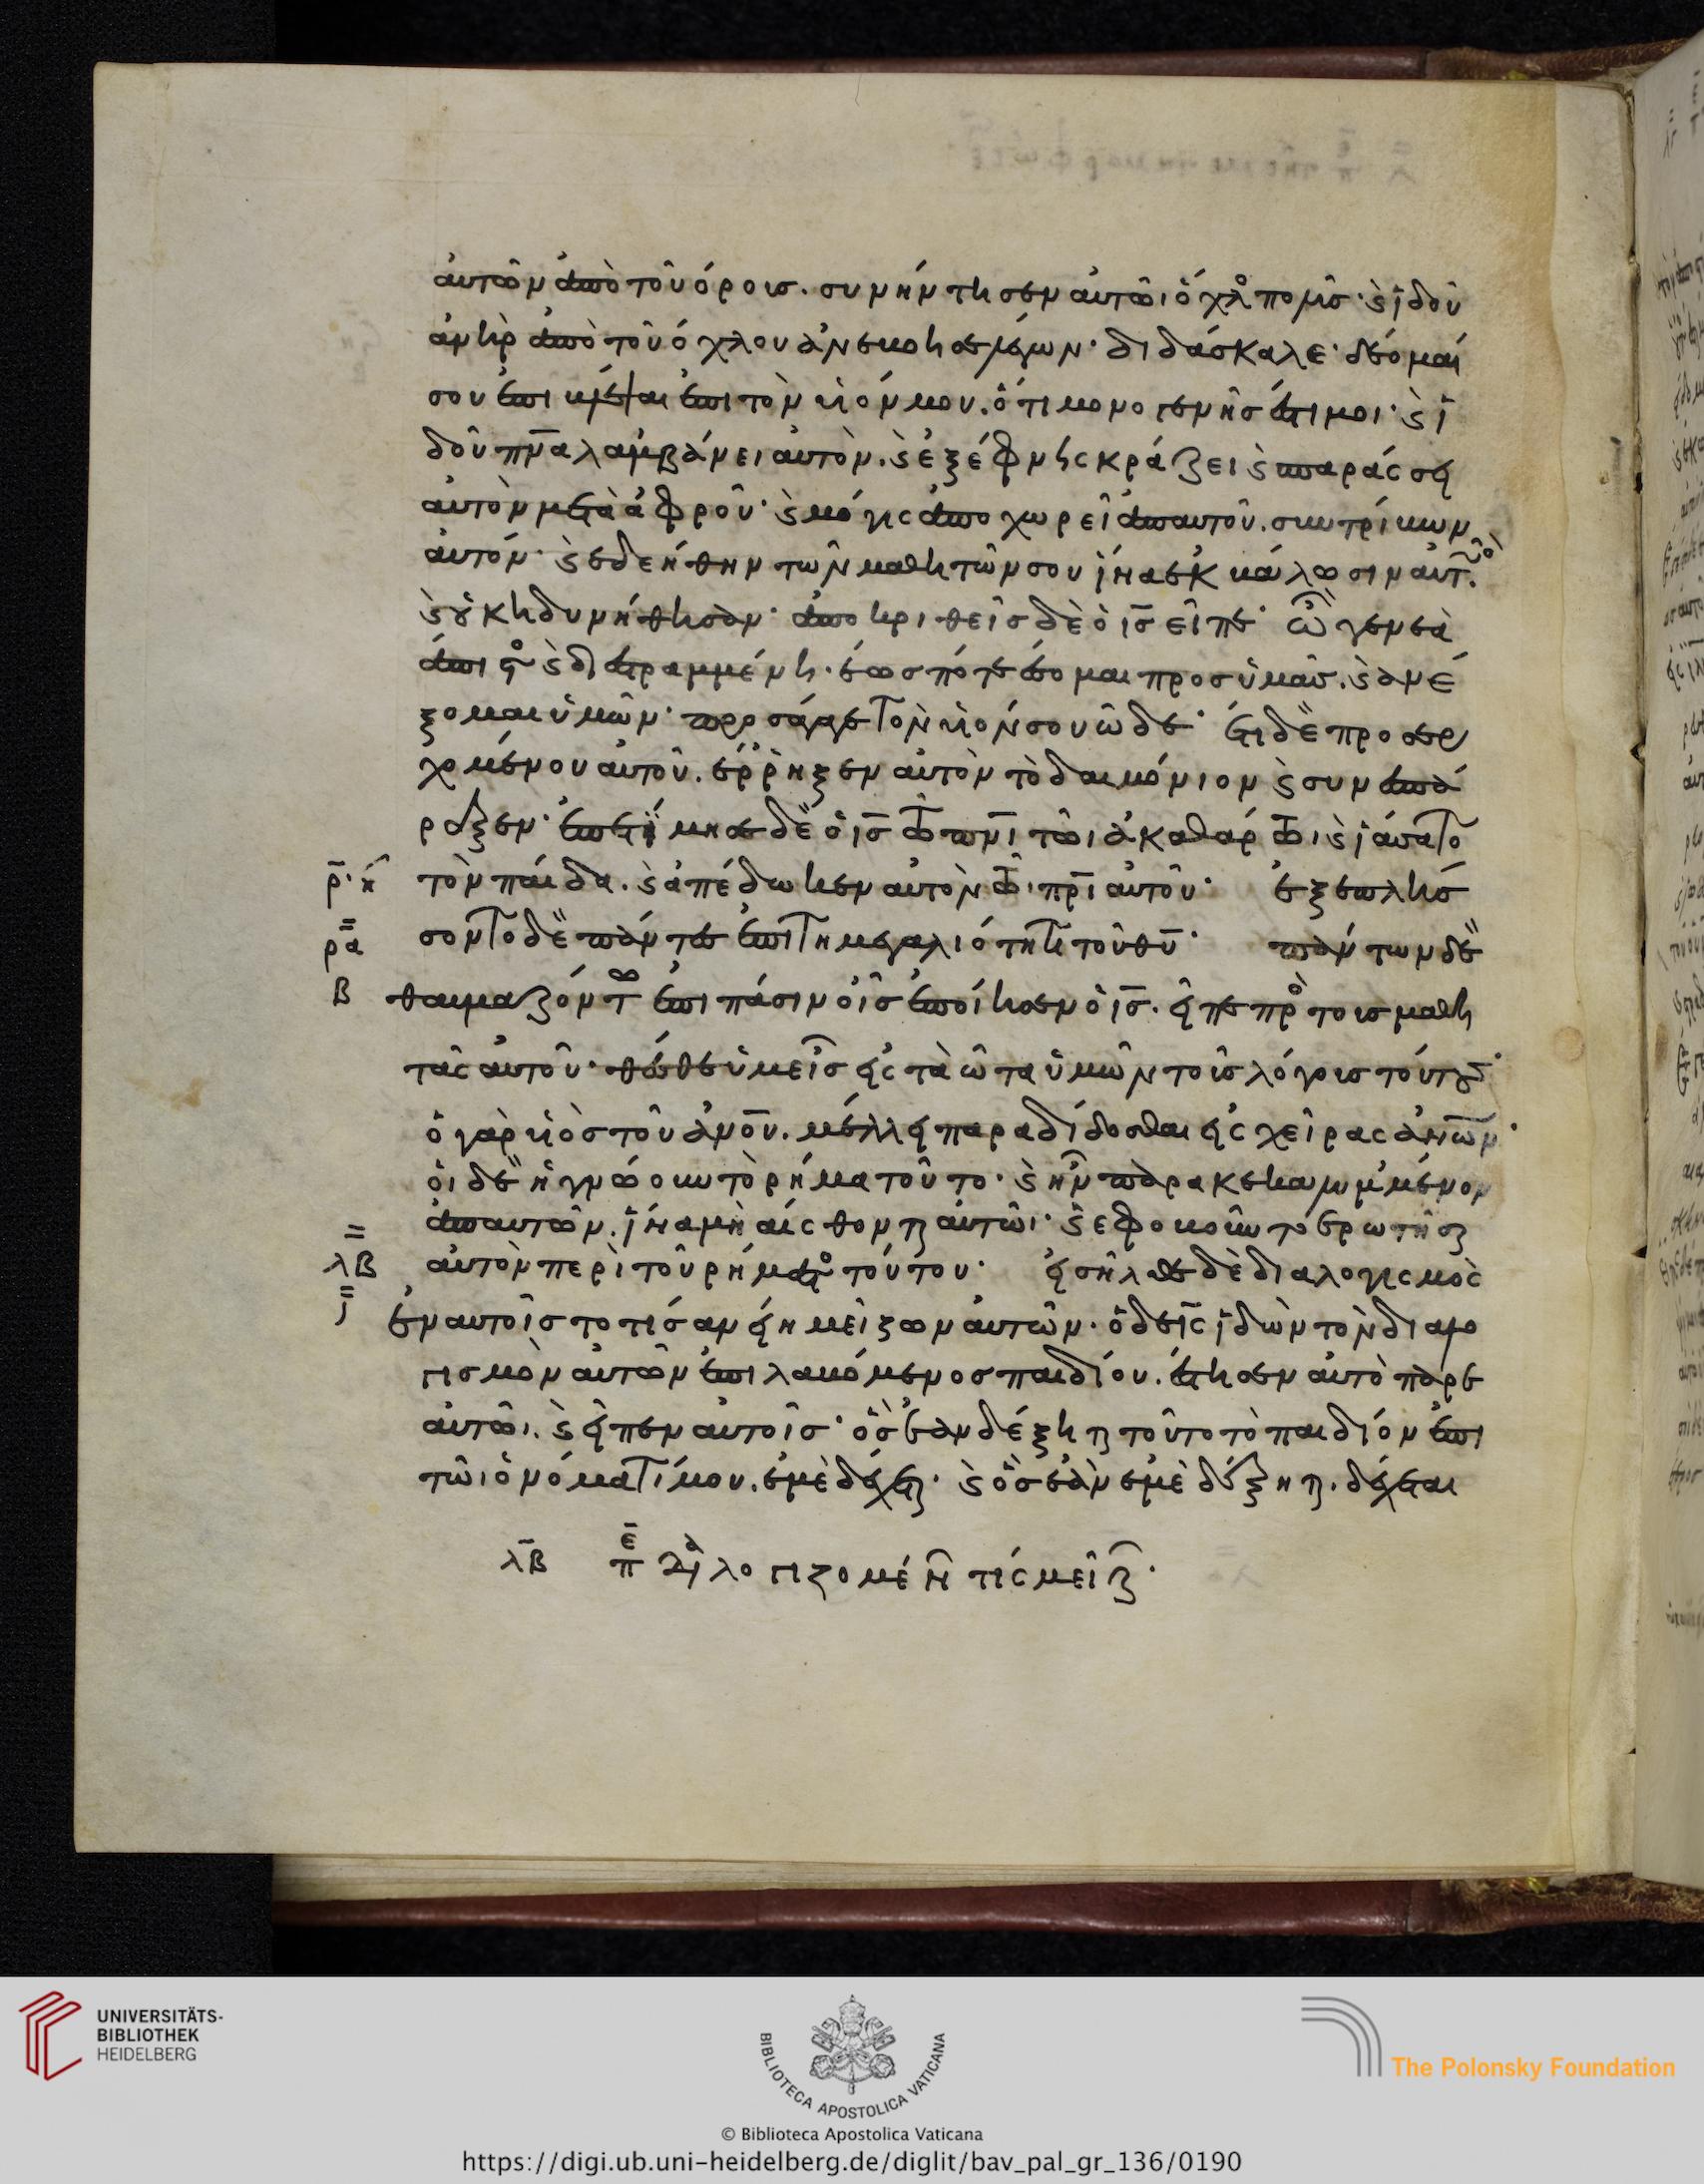 αὐτῶν ἀπὸ τοῦ ὄρους. συνήντησεν αὐτῶι ὄχλος πολύς· καὶ ἰδοῦ
ἀνὴρ ἀπὸ τοῦ ὄχλου ἀνεβόησε λέγων· διδάσκαλε· δέομαί
σου ἐπιβλέψαι ἐπὶ τὸν υἱόν μου. ὅτι μονογενής ἐστι μοι· καὶ ἰ
δοῦ πνα λαμβάνει αὐτὸν. καὶ ἐξέφνης κράζει καὶ σπαράσσει
αὐτὸν μετὰ ἀφροῦ· καὶ μόγις ἀποχωρεῖ ἀπαυτοῦ. συντρίβων
αὐτόν· καὶ ἐδεήθην τῶν μαθητῶν σου ἵνα ἐκβάλωσιν αὐτό.
καὶ οὐκ ηδυνήθησαν· ἀποκριθεὶς δὲ ὁ ις εἶπε· ὦ γενεὰ
ἄπιστος καὶ διεστραμμένη. ἕως πότε ἔσομαι προς ὑμᾶς. καὶ ἀνέ
ξομαι ὑμῶν· προσάγαγε τὸν υἱόν σου ὧδε· ἔτι δὲ προσερ
χομένου αὐτοῦ. ἔρρηξεν αὐτὸν τὸ δαιμόνιον καὶ συνεσπά
ραξεν· ἐπετίμησε δὲ ὁ ις τῶ πνι τῶι ἀκαθάρτωι καὶ ἰάσατο
ρ· η τὸν παῖδα. καὶ ἀπέδωκεν αὐτὸν τῶι πρι αὐτοῦ· ἐξεπλήσ
ρα σοντο δὲ πάντες ἐπὶ τῆ μεγαλιότητι τοῦ θυ· πάντων δὲ
β θαυμαζόντων ἐπι πάσιν οἷς ἐποίησεν ὁ ις. εἶπε προς τους μαθη
τὰς αὐτοῦ· θέσθε ὑμεῖς εἰς τὰ ὦτα ὑμῶν τοῖς λόγοις τούτους·
ὁ γὰρ υἱὸς τοῦ ἀνου. μέλλει παραδίδοσθαι εἰς χεῖρας ἀνων·
οἱ δὲ ἠγνόουν τὸ ρήμα τοῦτο· καὶ ἦν παρακεκαλυμμένον
ἀπαυτῶν. ἵνα μὴ αίσθονται αὐτῶι· καὶ εφοβοῦντο ἐρωτῆσαι
λβ αὐτὸν περὶ τοῦ ρήματος τούτου· εἰσῆλθε δὲ διαλογισμὸς
ι ἐν αυτοῖς το τίς αν εἴη μείζων αὐτῶν· ὁ δε ις ἰδὼν τὸν διαλο
γισμὸν αὐτῶν ἐπιλαβόμενος παιδίου. ἔστησεν αὐτὸ παρ ε
αὐτῶι. καὶ εἶπεν αυτοῖς· ὃς ἐὰν δέξηται τοῦτο τὸ παιδίον ἐπι
τῶι ὀνόματί μου. ἐμὲ δέχεται. καὶ ὃς ἐὰν ἐμὲ δέξηται. δέχεται
λβ πε διαλογιζομένων τίς μείζων·
UNIVERSITÄTS-
BIBLIOTHEK
HEIDELBERG
BIBLIOTECA APOSTOLICA VATICANA
The Polonsky Foundation
© Biblioteca Apostolica Vaticana
https://digi.ub.uni-heidelberg.de/diglit/bav_pal_gr_136/0190